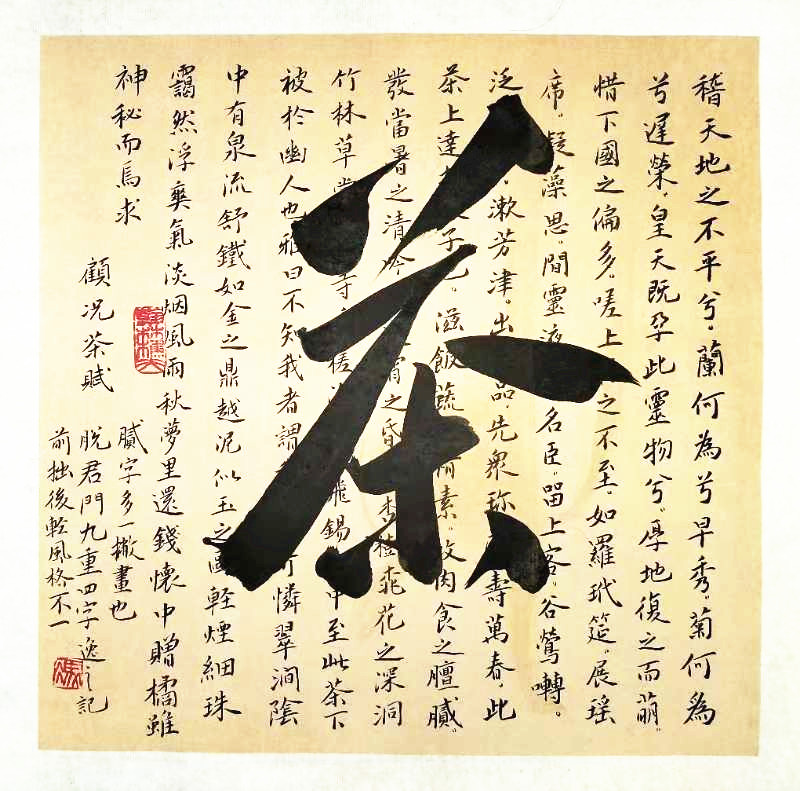 茶
稽天地之不平兮。蘭何為兮早秀。菊何為
兮遲榮。皇天既孕此靈物兮。厚地復之而萌。
惜下國之偏多。嗟上之不至。如羅玳筵。展瑤
席。凝藻思。間靈液名臣。留上客。谷鶯囀。
泛漱芳津。出品。先眾珍壽萬春。此
茶上達天子也。滋飯蔬精素。攻肉食之膻膩。
發當暑之清吟宵之昏杏樹桃花之深洞
竹林草堂寺槎飛錫中至此茶下
被於幽人也雅曰不知我者謂可憐翠澗陰
中有泉流舒鐵如金之鼎越泥似玉之甌輕煙細珠
靄然浮爽氣淡烟風雨秋夢里還錢懷中贈橘雖
神秘而焉求
顧況茶賦
膩字多一撇畫也
脫君門九重四字逸之記
前拙後輕風格不一